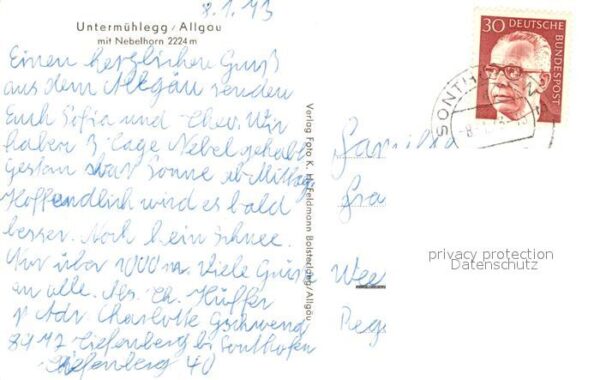 8.1.73
Untermühlegg / Allgäu
mit Nebelhorn 2224 m
Einen herzlichen Gruß
aus dem Allgäu senden
Euch Sofia und Wir
haben 3 Tage Nebel gehabt
Gestern war Sonne ab Mittag
Hoffendlich wird es bald
besser. Noch kein Schnee.
Nur über 1000 m. Viele Grüße
an alle. Abs. Ch. Küffer
Adr. Charlotte Gschwend
8972 Tiefenberg bei Sonthofen
Tiefenberg 40
Verlag Foto K. H. Feldmann Bolsterlang/Allgäu
30 DEUTSCHE
BUNDESPOST
SONTH
Familie
privacy protection
Datenschutz